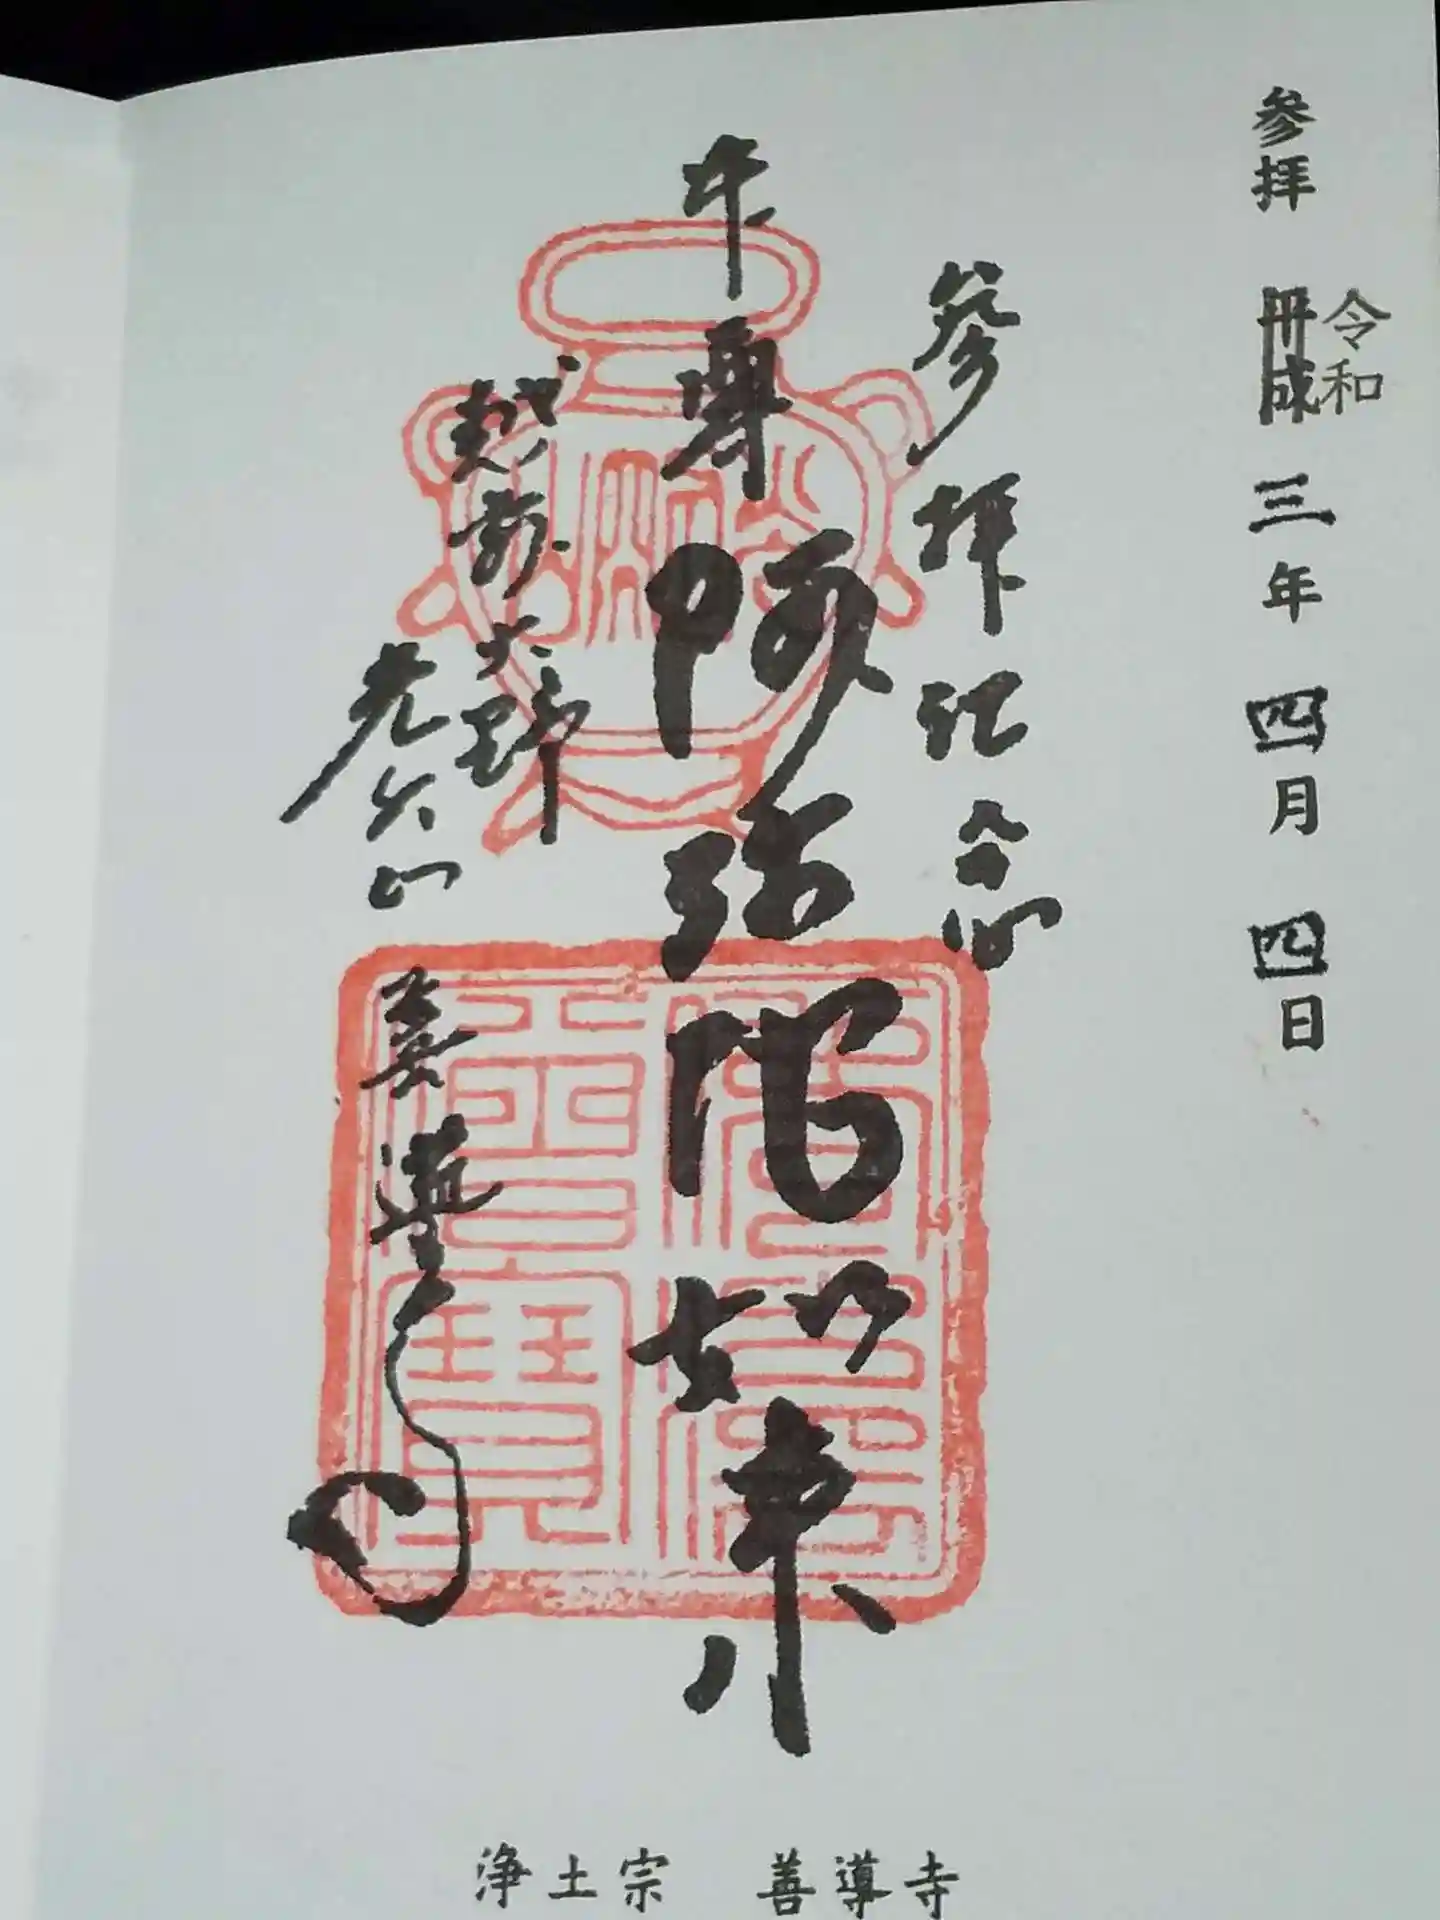 参拝 平成 三年 四月 四日
令和
参拝記念
本尊 阿弥陀如来
越前大野
光公山 善導寺
浄土宗 善導寺